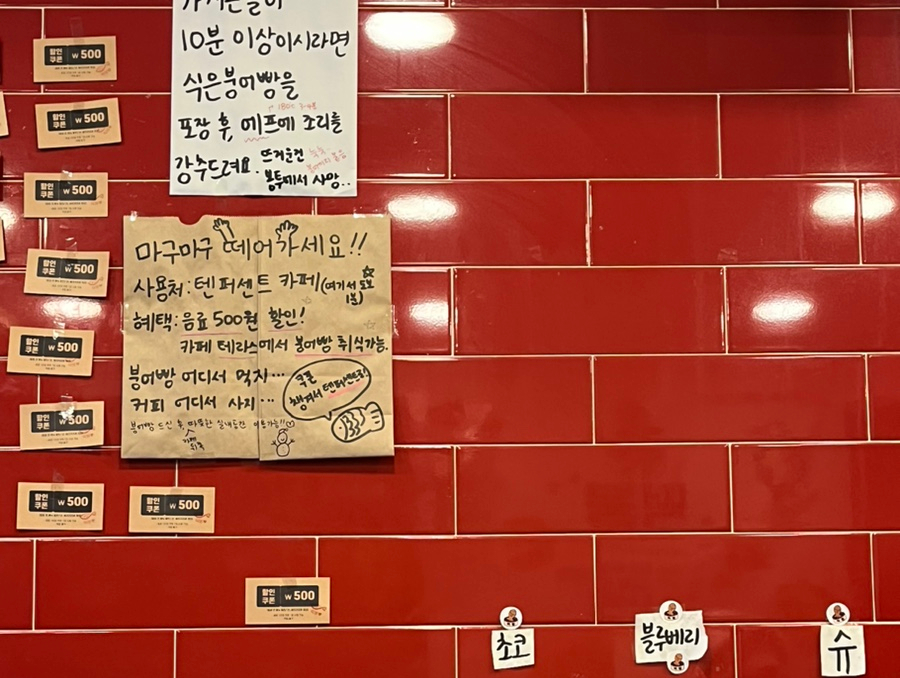 가시는길이
10분 이상이시라면
식은붕어빵을
포장 후, 에프에 조리를
강추드려요. 뜨거운건
봉투에서 사망..
마구마구 떼어가세요!!
사용처: 텐퍼센트 카페 (여기서 도보 1분)
혜택: 음료 500원 할인!
카페 테라스에서 붕어빵 취식가능.
붕어빵 어디서 먹지...
커피 어디서 사지...
쿠폰
챙겨서 텐퍼센트로!
붕어빵 드신 후, 따뜻한 실내공간 이용가능!!
할인쿠폰 ₩500
할인쿠폰 ₩500
할인쿠폰 ₩500
할인쿠폰 ₩500
할인쿠폰 ₩500
할인쿠폰 ₩500
할인쿠폰 ₩500
할인쿠폰 ₩500
할인쿠폰 ₩500
초코
블루베리
슈